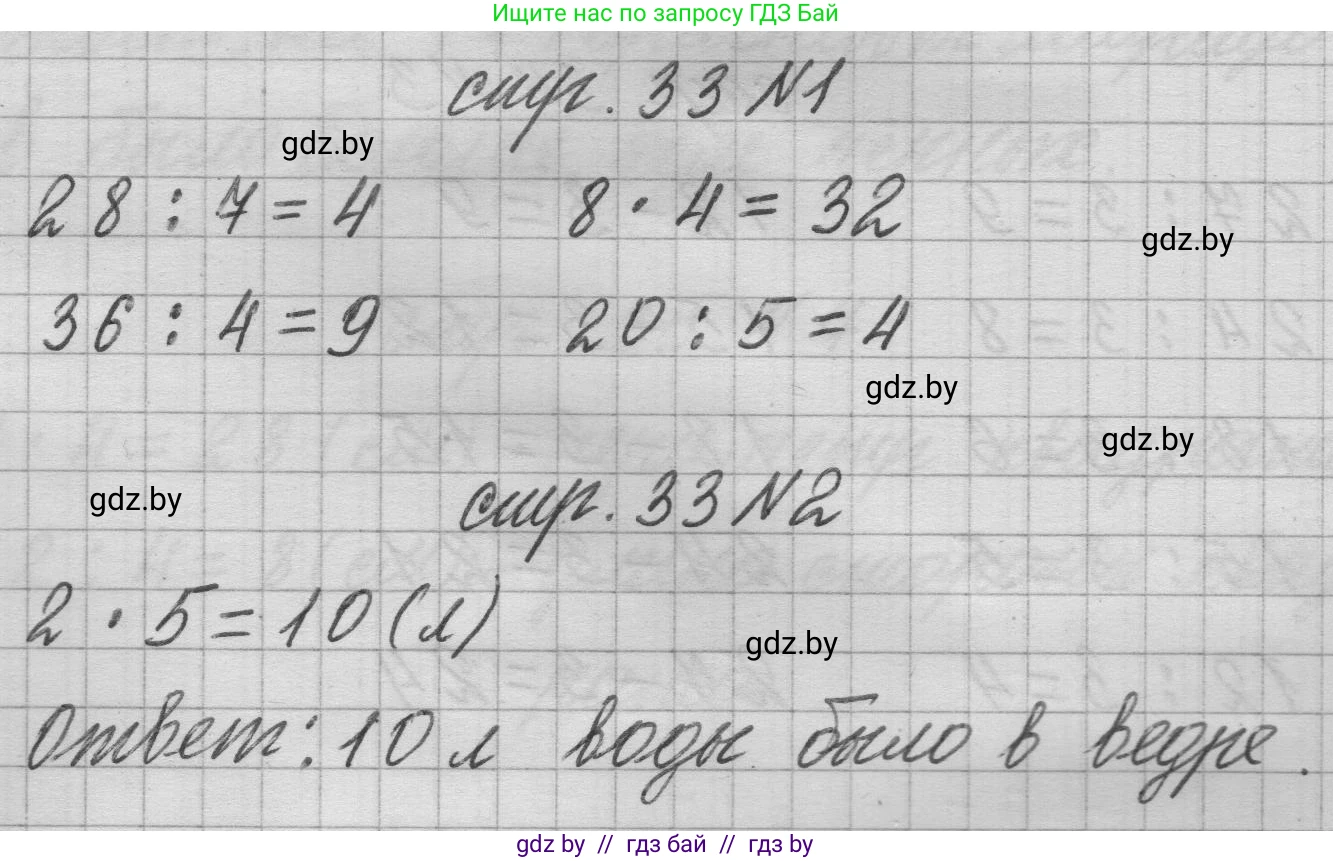 Ищите нас по запросу ГДЗ Бай
стр. 33 №1
gdz.by
28 : 7 = 4 8 · 4 = 32
gdz.by
36 : 4 = 9 20 : 5 = 4
gdz.by
gdz.by
gdz.by
стр. 33 №2
2 · 5 = 10 (л)
gdz.by
Ответ: 10 л воды было в ведре.
gdz by // гдз бай // гдз by